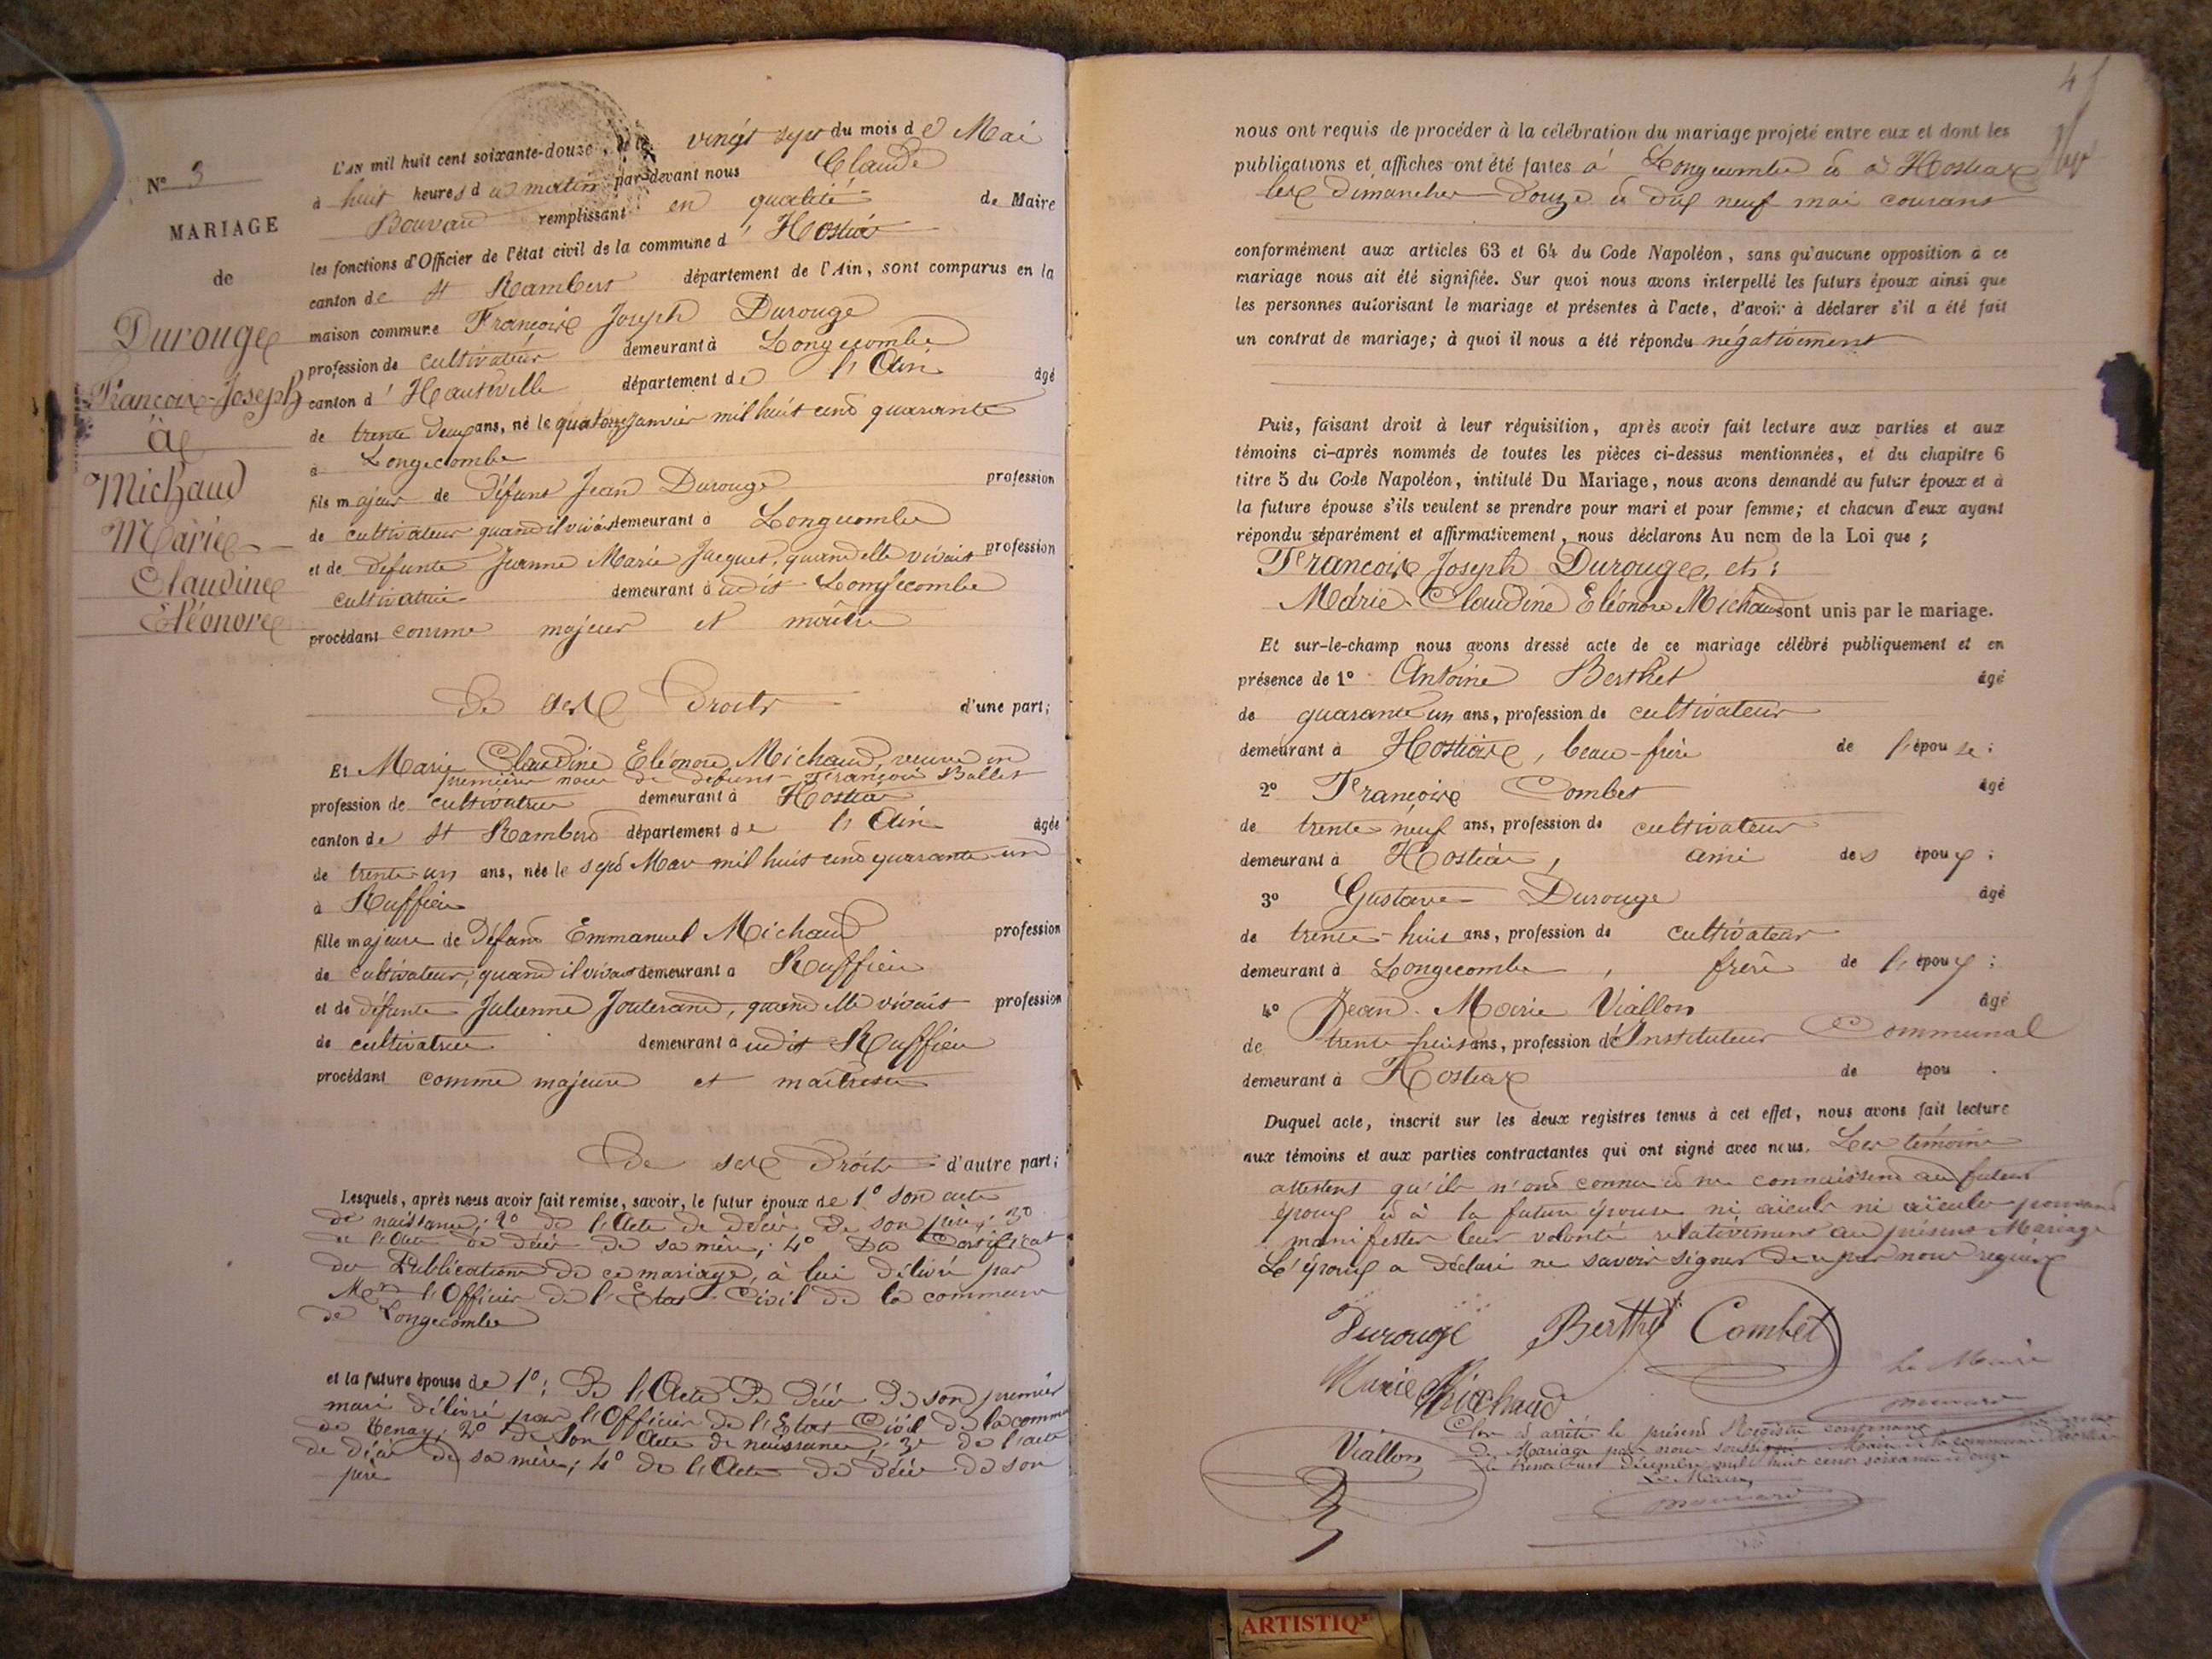 N° 3
MARIAGE
de
Durouge
François-Joseph
à
Michaud
Marie
Claudine
Eléonore
L'AN mil huit cent soixante-douze, le vingt sept du mois de Mai
à huit heures du matin par-devant nous Claude
remplissant en qualité de Maire
les fonctions d'Officier de l'état civil de la commune d'Hostias
canton de St Rambert département de l'Ain, sont comparus en la
maison commune François Joseph Durouge
profession de cultivateur demeurant à Longecombe
canton d'Hauteville département de l'Ain âgé
de trente deux ans, né le quatorze Janvier mil huit cent quarante
à Longecombe
fils majeur de défunt Jean Durouge profession
de cultivateur quand il vivait demeurant à Longecombe
et de défunte Jeanne Marie Jacquet, quand elle vivait profession
cultivatrice demeurant à udit Longecombe
procédant comme majeur et maître
De ses Droits d'une part;
Et Marie Claudine Eléonore Michaud, veuve en
premières noces de defunt François Ballet
profession de cultivatrice demeurant à Hostias
canton de St Rambert département de l'Ain âgée
de trente-un ans, née le sept Mars mil huit cent quarante-un
à Ruffieu
fille majeure de Défunt Emmanuel Michaud profession
de cultivateur, quand il vivait demeurant à Ruffieu
et de défunte Julienne Jouterand, quand elle vivait profession
de cultivatrice demeurant à udit Ruffieu
procédant comme majeure et maîtresse
De ses Droits d'autre part;
Lesquels, après nous avoir fait remise, savoir, le futur époux de 1° son acte
de naissance; 2° de l'Acte de décès de son père; 3°
de l'Acte de décès de sa mère; 4° Du Certificat
des Publications de ce mariage, à lui délivré par
Mr l'Officier de l'Etat-Civil de la commune
de Longecombe
et la future épouse de 1°: De l'Acte De décès De son premier
mari délivré par l'Officier de l'Etat Civil de la comm
de Tenay; 2° de son Acte de naissance; 3° de l'acte
de décès de sa mère; 4° de l'Acte de décès de son
père
4
nous ont requis de procéder à la célébration du mariage projeté entre eux et dont les
publications et affiches ont été faites à Longecombe et à Hostias
les dimanches Douze et dix neuf mai courant
conformément aux articles 63 et 64 du Code Napoléon, sans qu'aucune opposition à ce
mariage nous ait été signifiée. Sur quoi nous avons interpellé les futurs époux ainsi que
les personnes autorisant le mariage et présentes à l'acte, d'avoir à déclarer s'il a été fait
un contrat de mariage; à quoi il nous a été répondu négativement
Puis, faisant droit à leur réquisition, après avoir fait lecture aux parties et aux
témoins ci-après nommés de toutes les pièces ci-dessus mentionnées, et du chapitre 6
titre 5 du Code Napoléon, intitulé Du Mariage, nous avons demandé au futur époux et à
la future épouse s'ils veulent se prendre pour mari et pour femme; et chacun d'eux ayant
répondu séparément et affirmativement, nous déclarons Au nom de la Loi que;
François Joseph Durouge, et:
Marie-Claudine Eléonore Michaud sont unis par le mariage.
Et sur-le-champ nous avons dressé acte de ce mariage célébré publiquement et en
présence de 1° Antoine Berthet âgé
de quarante un ans, profession de cultivateur
demeurant à Hostias, beau-frère de l'épouse;
2° François Combet âgé
de trente neuf ans, profession de cultivateur
demeurant à Hostias, ami des époux;
3° Gustave Durouge âgé
de trente-huit ans, profession de cultivateur
demeurant à Longecombe, frère de l'époux;
4° Jean-Marie Viallon âgé
de trente-huit ans, profession d'Instituteur Communal
demeurant à Hostias de épou .
Duquel acte, inscrit sur les deux registres tenus à cet effet, nous avons fait lecture
aux témoins et aux parties contractantes qui ont signé avec nous. Les témoins
attestent qu'ils n'ont connu et ne connaissent au futur
époux et à la future épouse ni aïeuls ni aïeules pouvant
manifester leur volonté relativement au présent Mariage
L'époux a déclaré ne savoir signer de par nous requis
Durouge Berthet Combet
Marie Michaud Le Maire
Clos et arrêté le présent Registre contenant
de Mariage par nous soussigné Maire de la commune d'Hostias
le trente-un décembre mil huit cent soixante-douze
Le Maire,
Viallon
ARTISTIQ